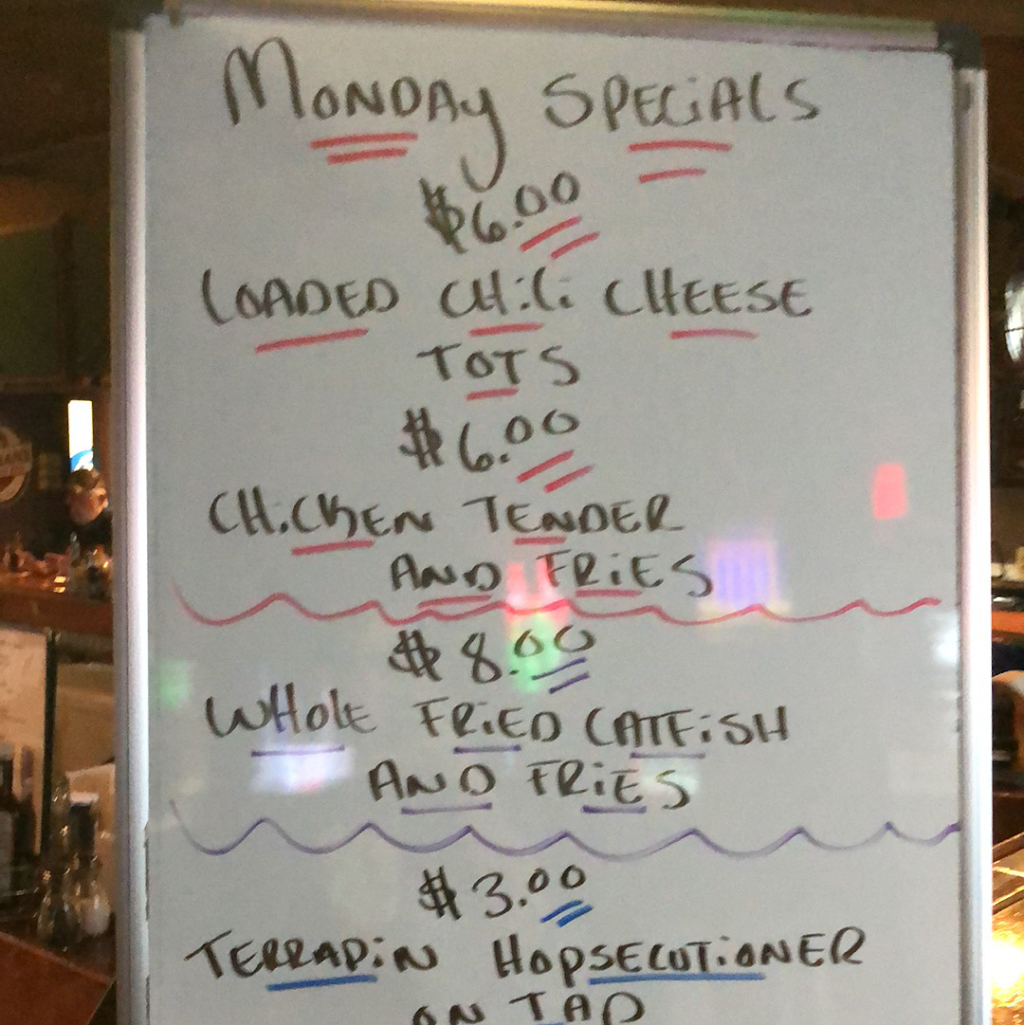 MONDAY SPECIALS
$6.00
LOADED CHILI CHEESE
TOTS
$6.00
CHICKEN TENDER
AND FRIES
$8.00
WHOLE FRIED CATFISH
AND FRIES
$3.00
TERRAPIN HOPSECUTIONER
ON TAP